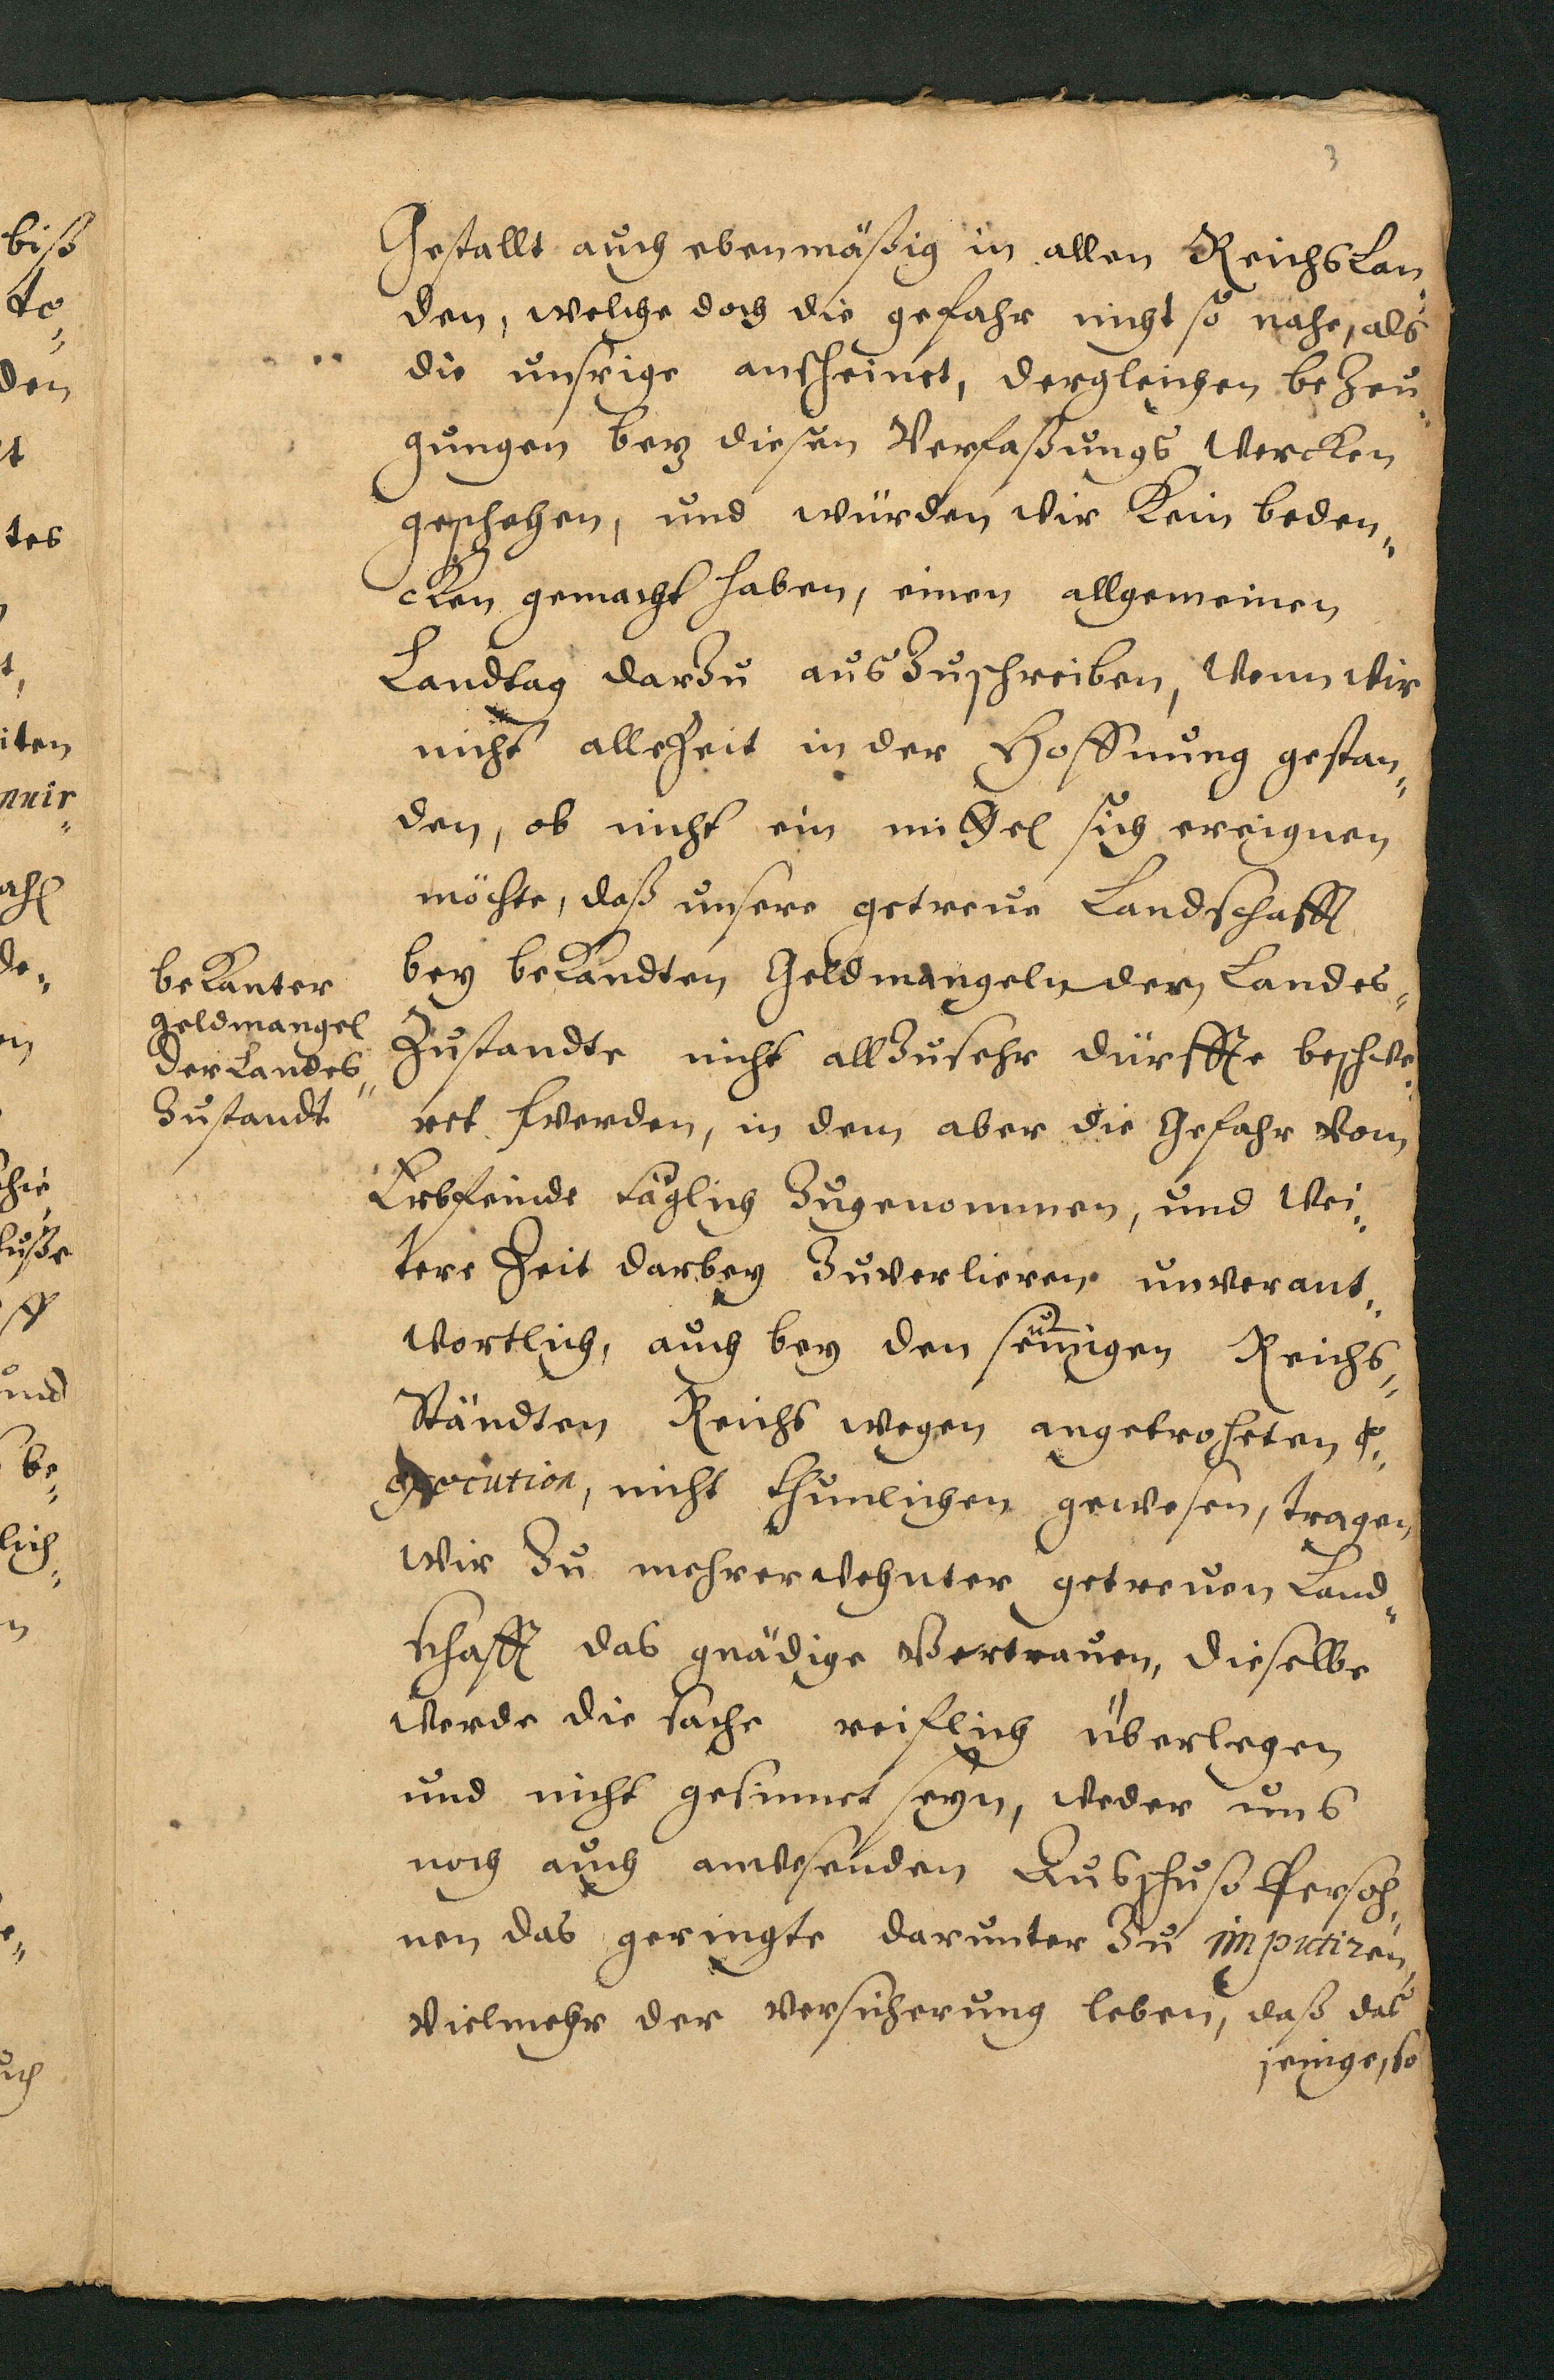 3
Gestallt auch ebenmäßig in allen Reichs Lan„
den, welche doch die gefahr nicht so nahe, als
die unsrige anscheinet, dergleichen beZeu„
gungen bey diesen Verfaßungs Wercken
geschehen, und würden wir Kein beden„
cken gemacht haben, einen allgemeinen
Landtag darZu ausZuschreiben, Wenn wir
nicht alleZeit in der Hoffnung gestan„
den, ob nicht ein mittel sich ereignen
möchte, daß unsere getreue Landschafft
bey beKandten Geldmangeln dern Landes„
Zustandte nicht allZusehr dürffte beschwe„
ret werden, in dem aber die Gefahr vom
Erbfeinde täglich Zugenommen, und Wei„
tere Zeit darbey Zuverlieren unverant„
wortlich, auch bey den Reichs„
Ständten Reichs wegen angetroheten E„
xecution, nicht thunlichen gewesen, tragen
wir Zu mehrerwehnter getreuen Land„
schafft das gnädige Vertrauen, dieselbe
werde die sache reiflich überlegen
und nicht gesinnet seyn, weder uns
noch auch anwesenden Ausschuß Persoh„
nen das geringte darunter Zu imputiren,
Vielmehr der versicherung leben, daß das
jenige, so
beKanter
geldmangel
der Landes„
Zustandt
biß
te„
den
tes
iten
nuir„
de„
luße
und
be„
lich„